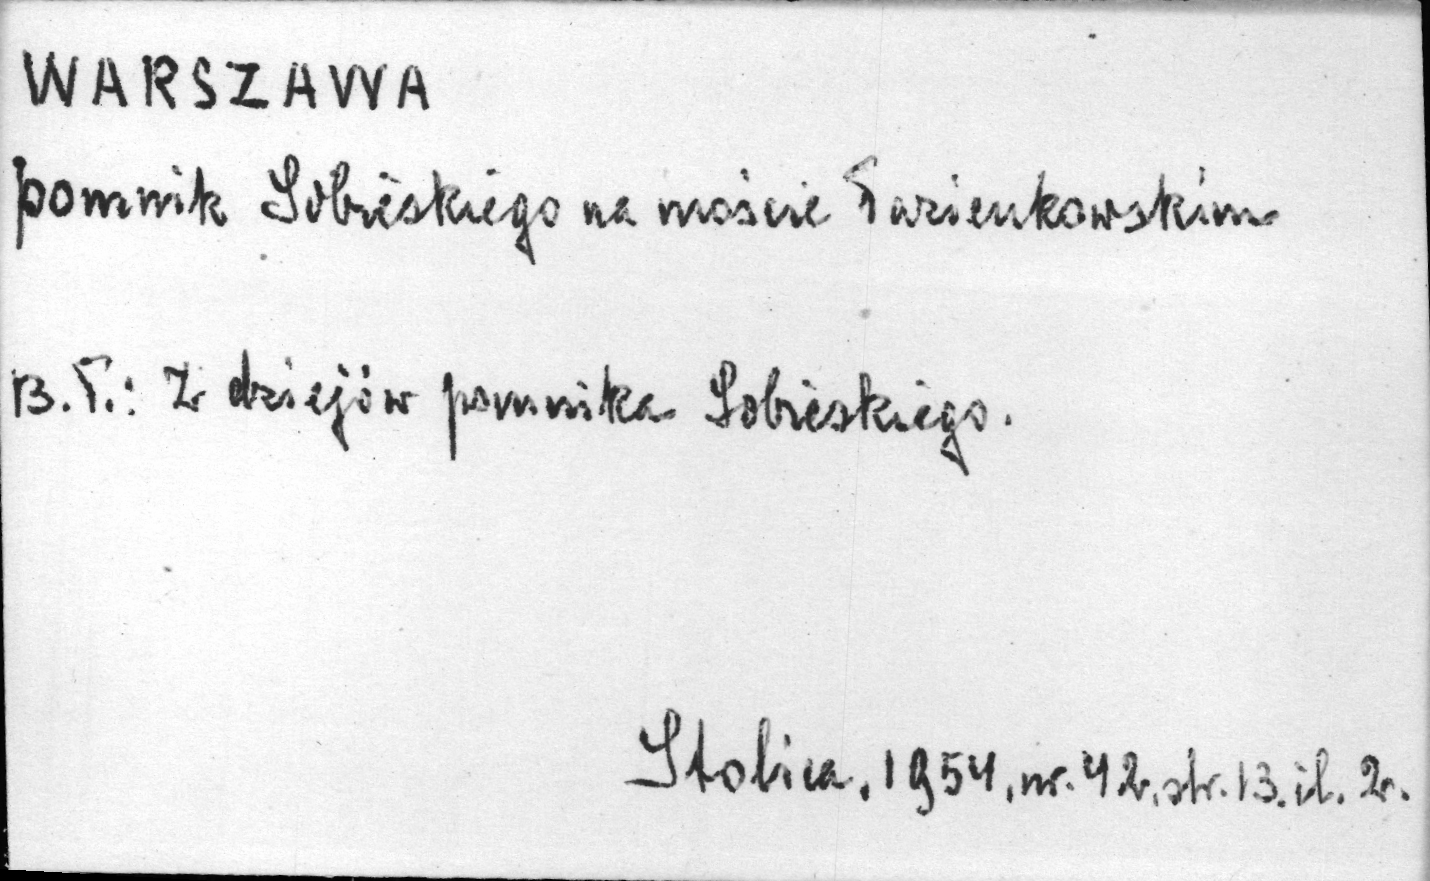 WARSZAWA
pomnik Sobieskiego na moście Łazienkowskim
B.T.: Z dziejów pomnika Sobieskiego.
Stolica, 1954, nr. 42, str. 13. il. 2.